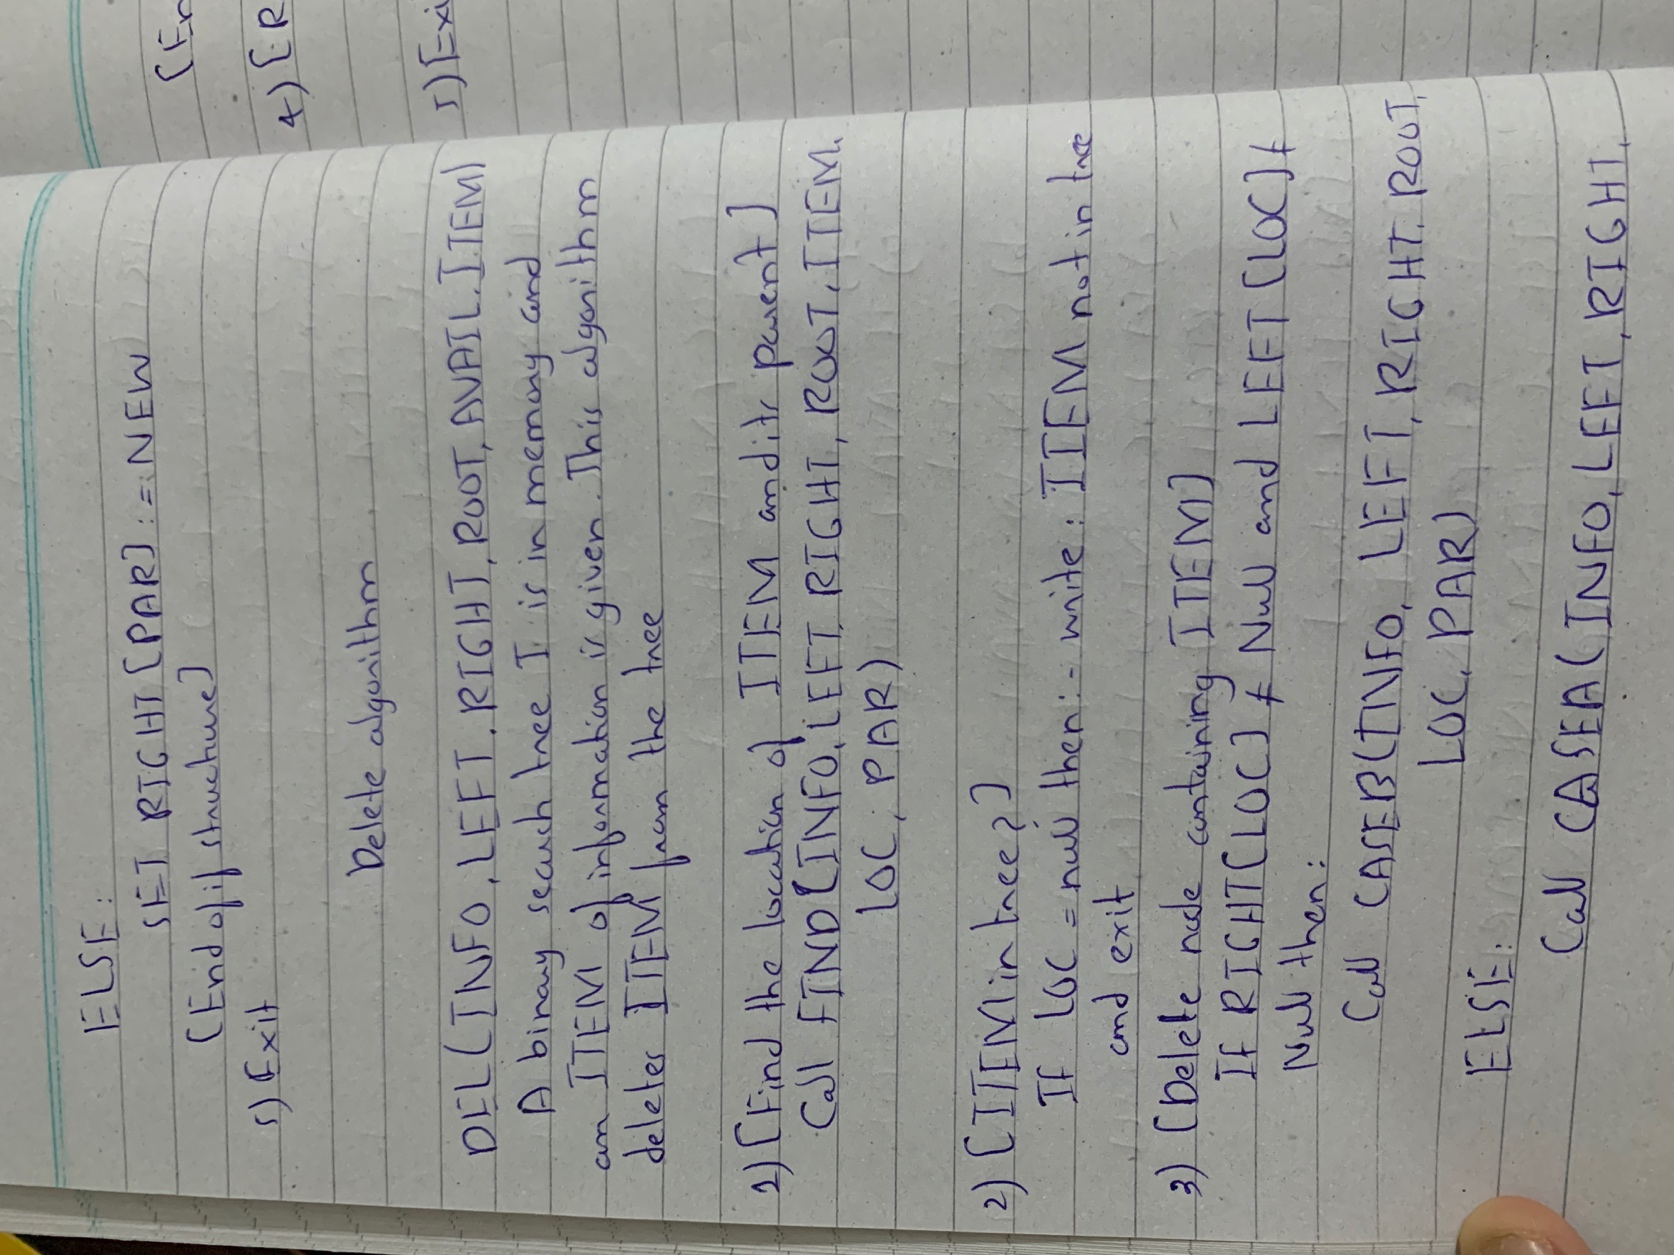 ELSE:
SET RIGHT[PAR]:=NEW
[End of if structure]
5) Exit
Delete algorithm
DEL(INFO, LEFT, RIGHT, ROOT, AVAIL, ITEM)
A binary search tree T is in memory and
an ITEM of information is given. This algorithm
deletes ITEM from the tree
1) [Find the location of ITEM and its parent]
Call FIND(INFO, LEFT, RIGHT, ROOT, ITEM,
LOC, PAR)
2) [ITEM in tree?]
IF LOC = null then:- write: ITEM not in tree
and exit
3) [Delete node containing ITEM]
IF RIGHT[LOC] ≠ Null and LEFT[LOC] ≠
Null then:
Call CASEB(INFO, LEFT, RIGHT, ROOT,
LOC, PAR)
ELSE:
Call CASEA(INFO, LEFT, RIGHT,
[En
4) [R
5) [Exi